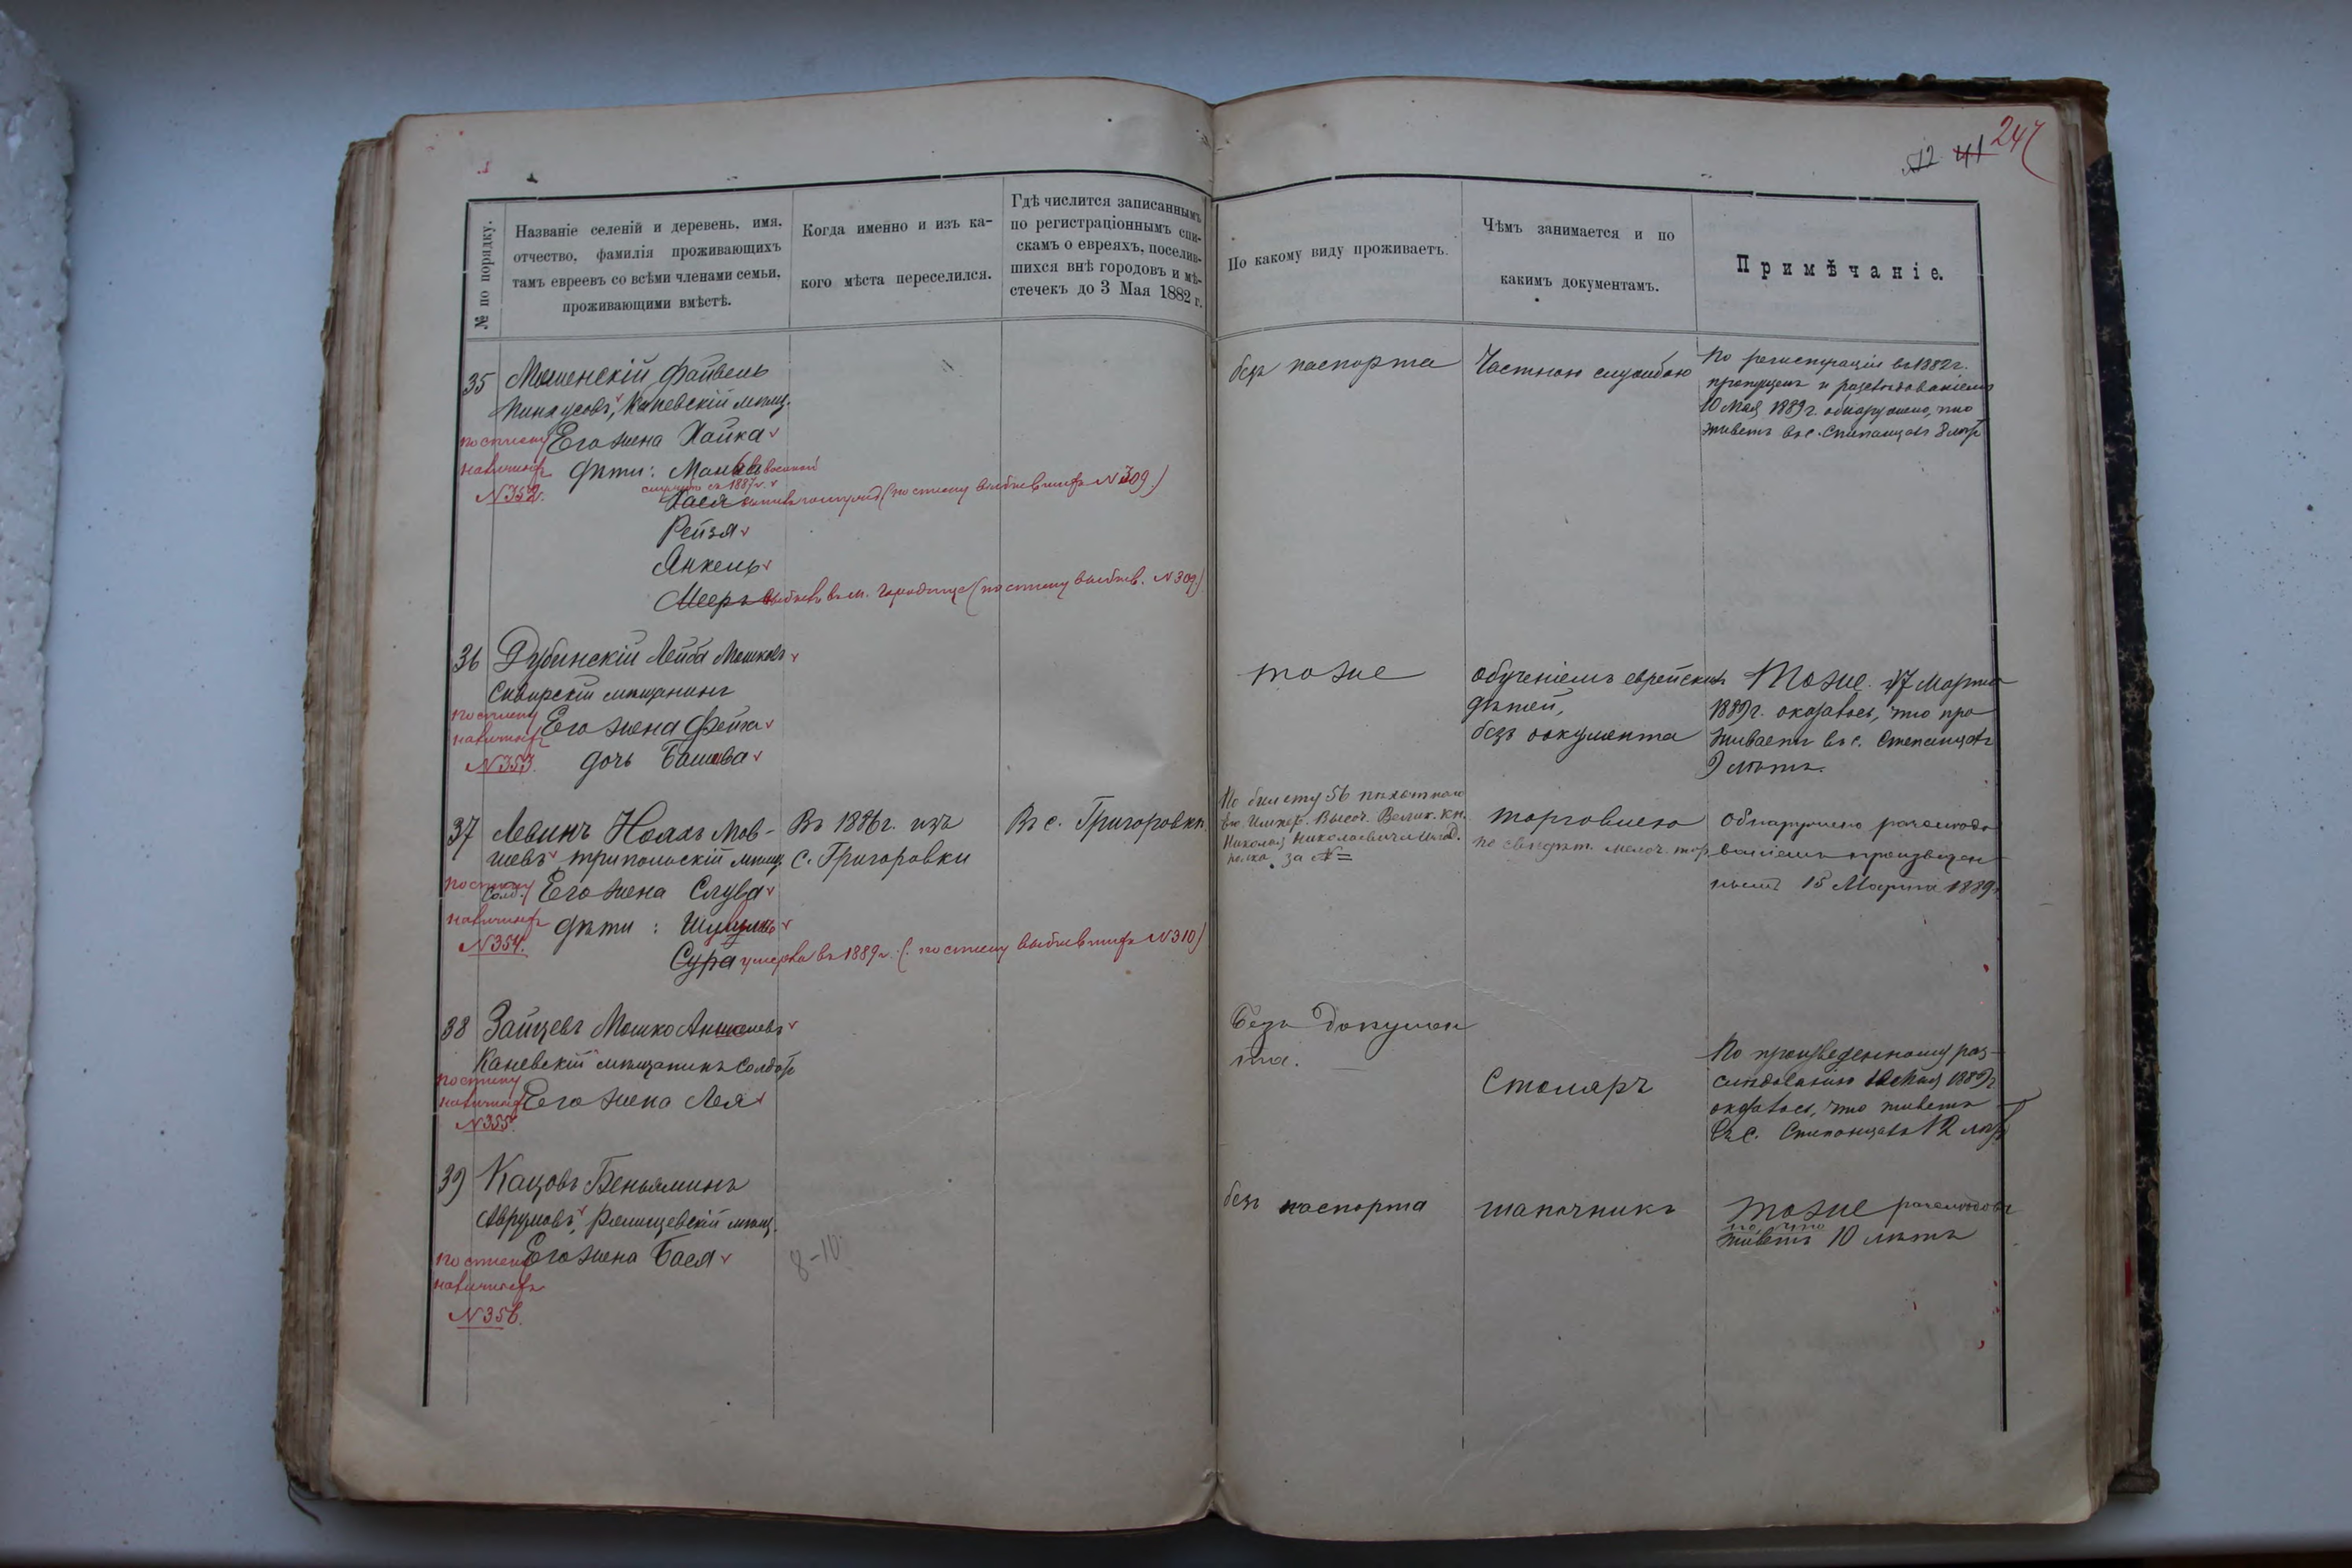 512 41 247
№ по порядку.
Названіе селеній и деревень, имя,
отчество, фамилія проживающихъ
тамъ евреевъ со всѣми членами семьи,
проживающими вмѣстѣ.
Когда именно и изъ ка-
кого мѣста переселился.
Гдѣ числится записаннымъ
по регистраціоннымъ спи-
скамъ о евреяхъ, поселив-
шихся внѣ городовъ и мѣ-
стечекъ до 3 Мая 1882 г.
По какому виду проживаетъ.
Чѣмъ занимается и по
какимъ документамъ.
Примѣчаніе.
35
Файвель
Пинхусовъ, Каневскій мѣщ.
Его жена Хайка
дѣти:
съ 1887 г.
Хася (по списку выбывшихъ N 309.)
Рейзя
Анкель
Мееръ выбылъ въ м. Городище (по списку выбыв. N 309.)
по списку
наличныхъ
N 352.
безъ паспорта
Частною службою
По регистраціи въ 1882 г.
пропущенъ и разслѣдованіемъ
10 Мая 1889 г. обнаружено, что
живетъ въ с. Степанцахъ 8 лѣтъ
36
Дубинскій Лейба Мошковъ
мѣщанинъ
Его жена Фейга
дочь Башева
по списку
наличныхъ
N 353.
тоже
обученіемъ еврейскихъ
дѣтей,
безъ документа
Тоже. 17 Марта
1889 г. оказалось, что про
живаетъ въ с. Степанцахъ
9 лѣтъ.
37
Левинъ Ноахъ Мов-
шевъ трипольскій мѣщ.
солд.
Его жена Слува
дѣти:
Сура умерла въ 1889 г. (по списку выбывшихъ N 310)
по списку
наличныхъ
N 354.
Въ 1886 г. изъ
с. Григоровки
Въ с. Григоровкѣ
По билету 56 пѣхотнаго
Его Импер. Высоч. Велик. Кн.
Николая Николаевича
полка за №=
торговлею
по свидѣт. мелоч. тор.
Обнаружено разслѣдо
ваніемъ произведен
нымъ 15 Марта 1889 г.
38
Зайцевъ Мошко Аншелевъ
Каневскій мѣщанинъ солдатъ
Его жена Лея
по списку
наличныхъ
N 355.
Безъ докумен
та.
Столяръ
По произведенному раз-
слѣдованію Мая 1889 г.
оказалось, что живетъ
въ с. Степанцахъ 12 лѣтъ
39
Кацовъ Беньяминъ
Аврумовъ, Ржищевскій мѣщ.
Его жена Бася
по списку
наличныхъ
N 356.
8-10
безъ паспорта
шапочникъ
Тоже разслѣдов
но, что
живетъ 10 лѣтъ